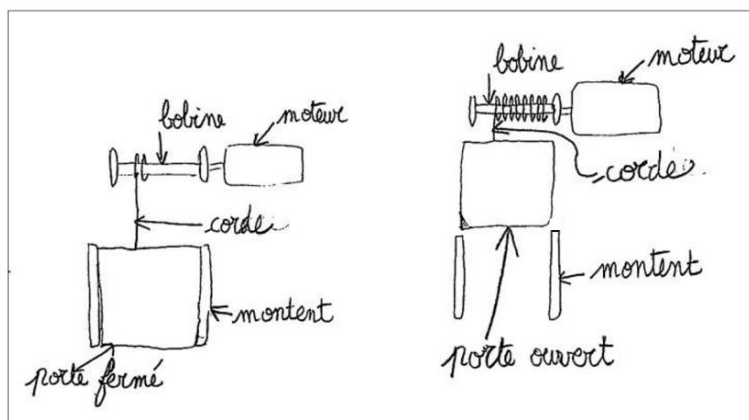 bobine
moteur
corde
montent
porte fermé
bobine
moteur
corde
montent
porte ouvert